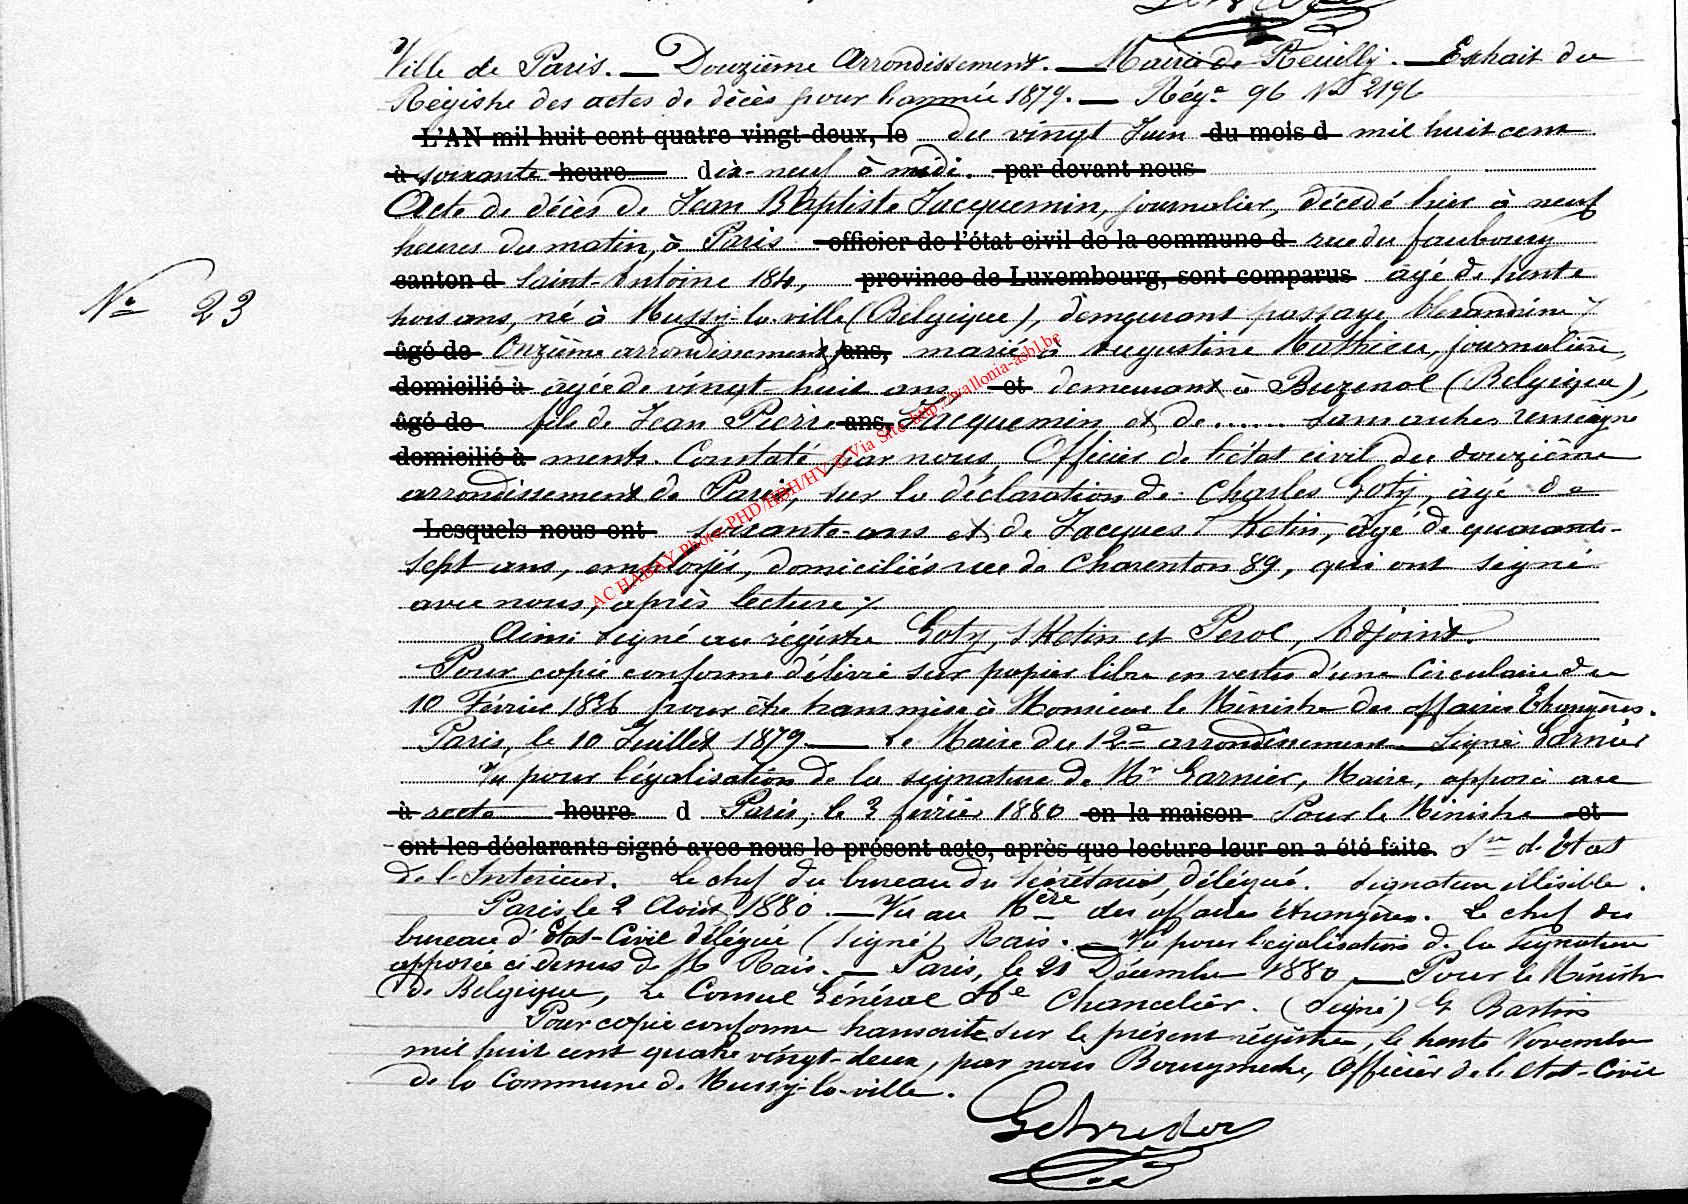 Ville de Paris. — Douzième Arrondissement. — Mairie de Reuilly. — Extrait du
Régistre des actes de décès pour l'année 1879. — Rég. 96 No 2196
L'AN mil huit cent quatre-vingt-deux, le du vingt Juin du mois d mil huit cent
à soixante heure dix-neuf à midi. par devant nous
Acte de décès de Jean Baptiste Jacquemin, journalier, décédé hier à neuf
heures du matin, à Paris officier de l'état civil de la commune d rue du faubourg
canton d Saint-Antoine 184, province de Luxembourg, sont comparus âgé de trente
No 23
trois ans, né à Mussy-la-ville (Belgique), demeurant passage Alexandrine 7
âgé de Onzième arrondissement, ans, marié à Augustine Mathieu, journalière,
domicilié à âgée de vingt-huit ans, et demeurant à Buzenol (Belgique),
âgé de fils de Jean Pierre ans, Jacquemin et de ...... sans autres renseigne
domicilié à ments. Constaté par nous, Officier de l'état civil du douzième
arrondissement de Paris, sur la déclaration de Charles Goty, âgé de
Lesquels nous ont soixante ans et de Jacques Ketin, âgé de quarante-
sept ans, employés, domiciliés rue de Charenton 89, qui ont signé
avec nous, après lecture
Ainsi signé au régistre Goty, et Perol, Adjoint.
Pour copie conforme délivré sur papier libre en vertu d'une Circulaire du
10 Février 1836 pour être transmise à Monsieur le Ministre des affaires Etrangères.
Paris, le 10 Juillet 1879 — Le Maire du 12e arrondissement — Signé Garnier
Vu pour légalisation de la signature de Mr Garnier, Maire, apposé au
à recto heure d Paris, le 3 février 1880 en la maison Pour le Ministre et
ont les déclarants signé avec nous le présent acte, après que lecture leur en a été faite. d'Etat
de l'Interieur. Le chef du bureau du Secrétariat, délégué. Signature illisible.
Paris le 2 Août 1880. — Vu au Mère des affaires étrangères. Le chef du
bureau d'Etat-Civil délégué (Signé) Rais. — Vu pour légalisation de la Signature
apposée ci dessus de M Rais. — Paris, le 21 Décembre 1880 — Pour le Ministre
de Belgique, Le Consul Général Chancelier. (Signé) Bastin
Pour copie conforme transcrite sur le présent régistre, le trente Novembre
mil huit cent quatre vingt-deux, par nous Officier de l'Etat-Civil
de la Commune de Mussy-la-ville.
AC HABAY Photo PHD/HBH/HV © Via Site http://wallonia-asbl.be